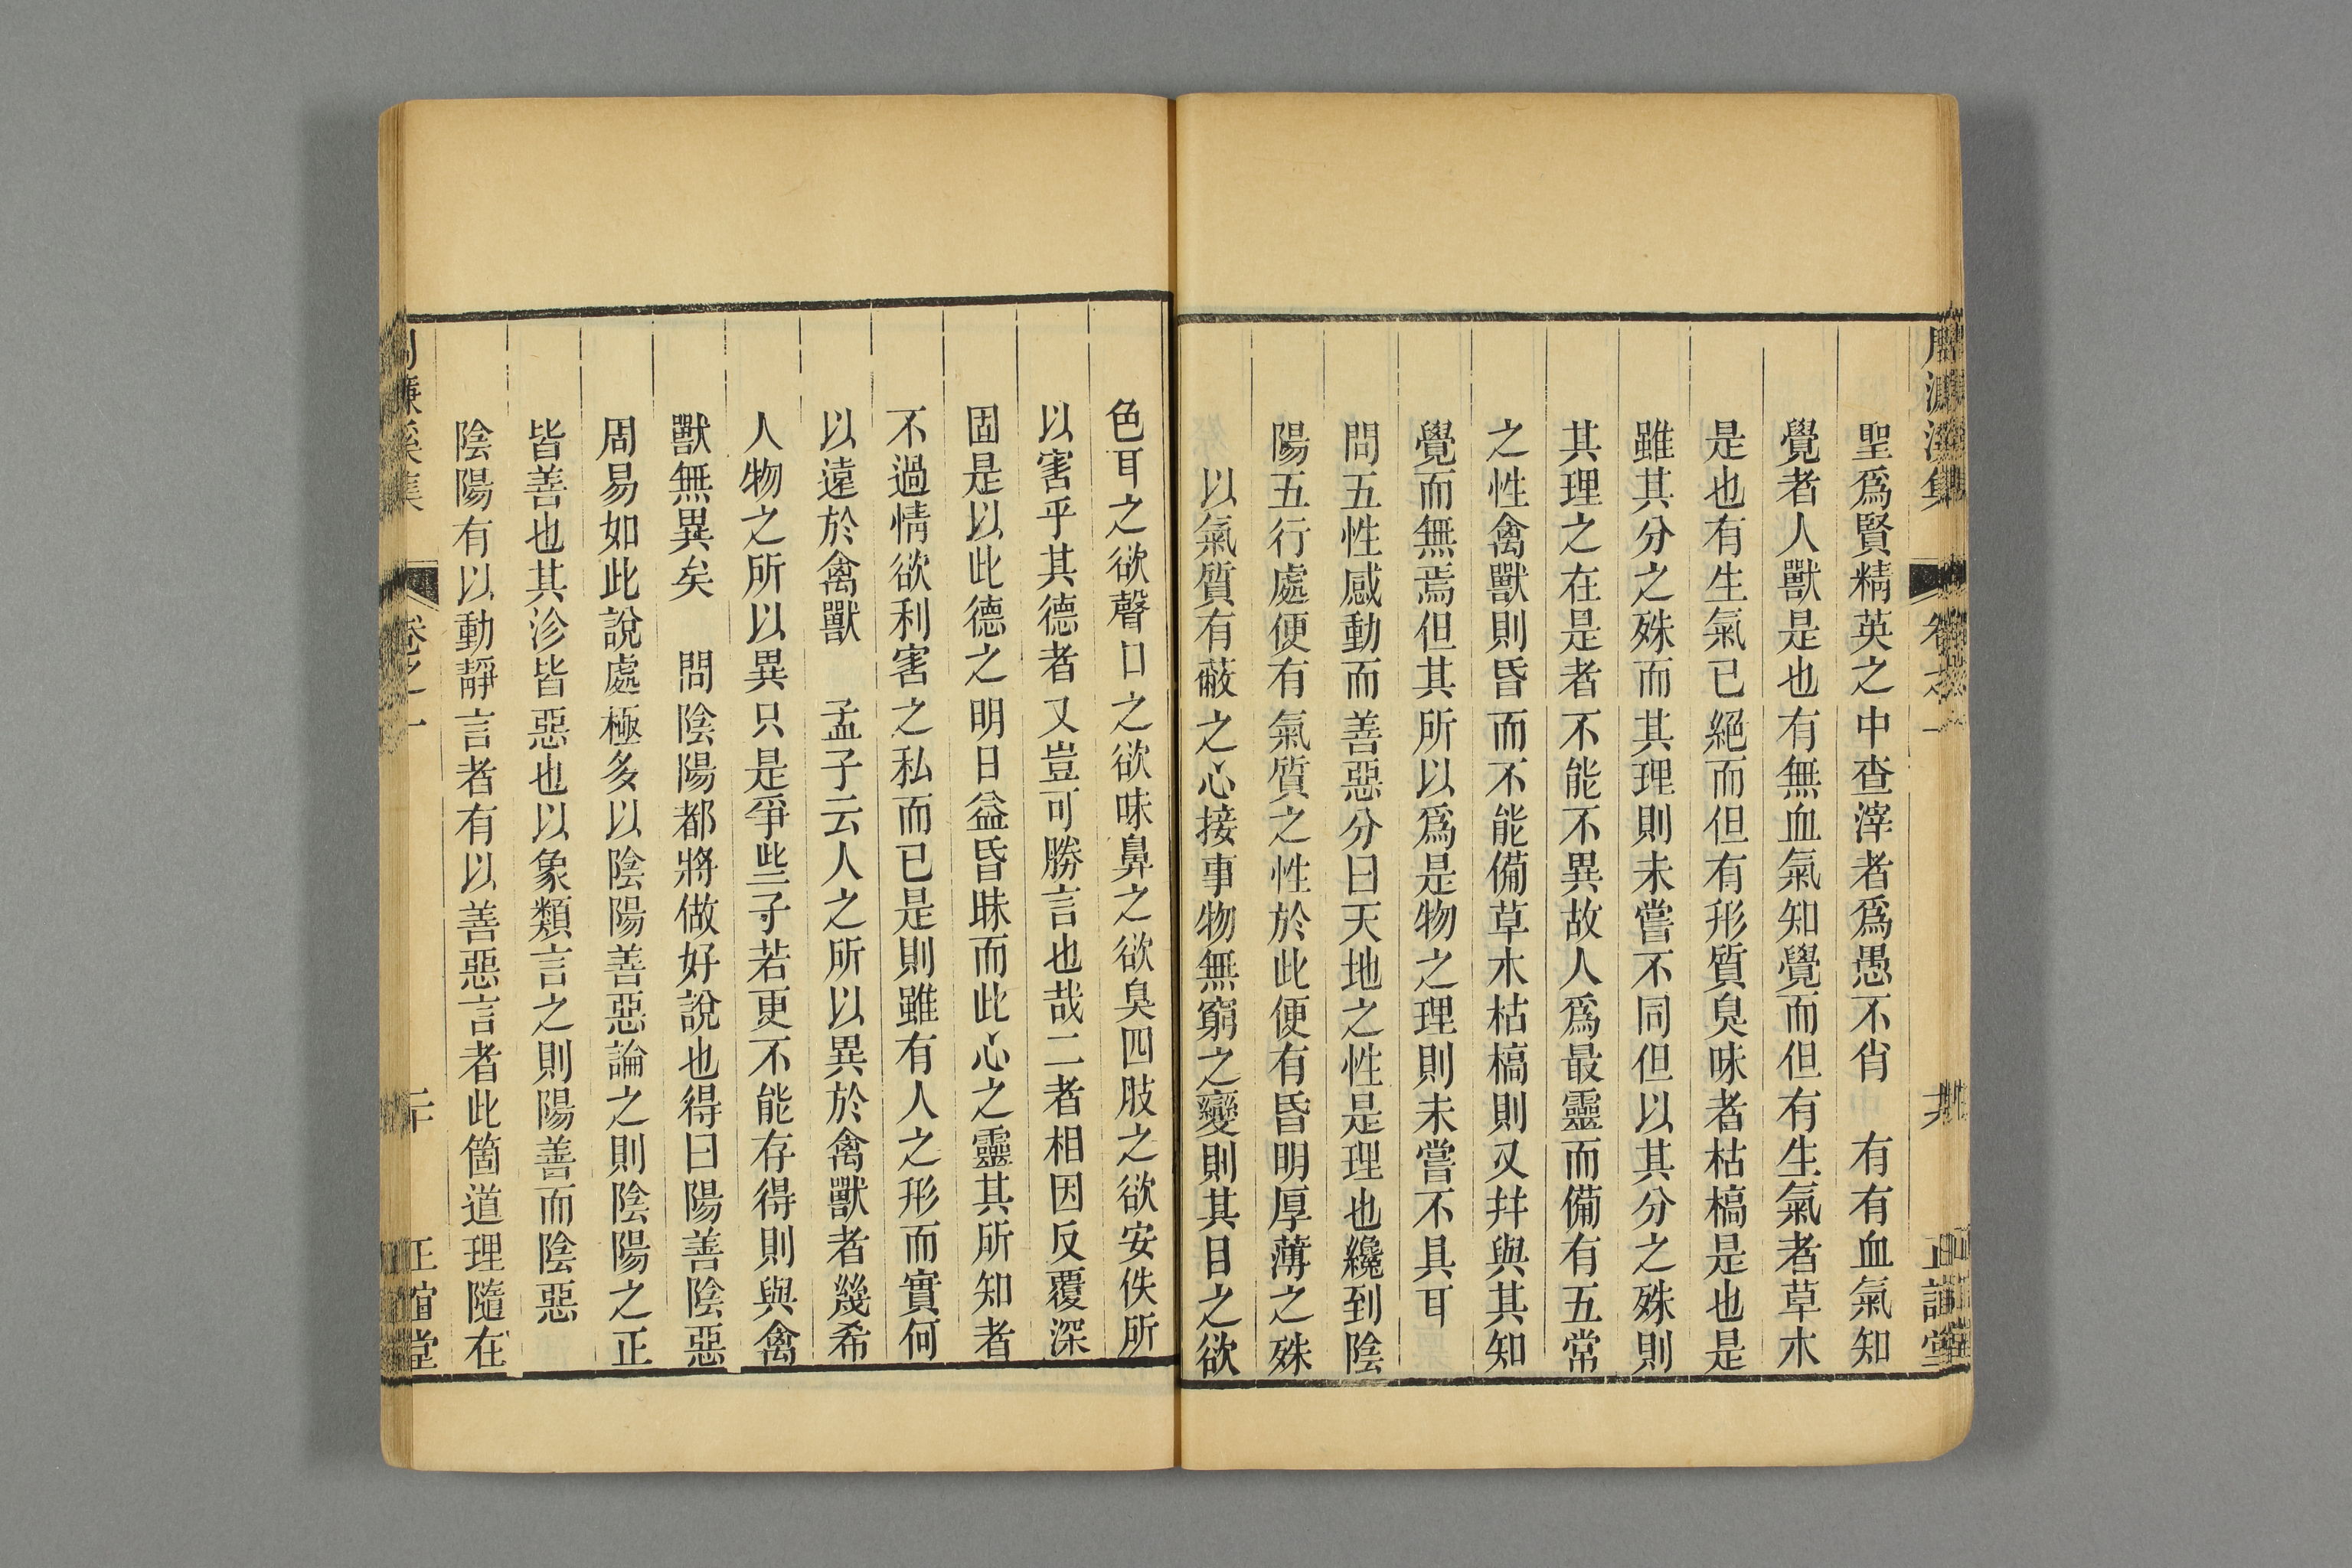 周濂溪集 卷之一 正誼堂
聖爲賢精英之中查滓者爲愚不肖　有有血氣知
覺者人獸是也有無血氣知覺而但有生氣者草木
是也有生氣已絕而但有形質臭味者枯槁是也是
雖其分之殊而其理則未嘗不同但以其分之殊則
其理之在是者不能不異故人爲最靈而備有五常
之性禽獸則昏而不能備草木枯槁則又幷與其知
覺而無焉但其所以爲是物之理則未嘗不具耳
問五性感動而善惡分曰天地之性是理也纔到陰
陽五行處便有氣質之性於此便有昏明厚薄之殊
以氣質有蔽之心接事物無窮之變則其目之欲
色耳之欲聲口之欲味鼻之欲臭四肢之欲安佚所
以害乎其德者又豈可勝言也哉二者相因反覆深
固是以此德之明日益昏昧而此心之靈其所知者
不過情欲利害之私而已是則雖有人之形而實何
以遠於禽獸　孟子云人之所以異於禽獸者幾希
人物之所以異只是爭些子若更不能存得則與禽
獸無異矣　問陰陽都將做好說也得曰陽善陰惡
周易如此說處極多以陰陽善惡論之則陰陽之正
皆善也其沴皆惡也以象類言之則陽善而陰惡
陰陽有以動靜言者有以善惡言者此箇道理隨在
周濂溪集 卷之一 二十 正誼堂